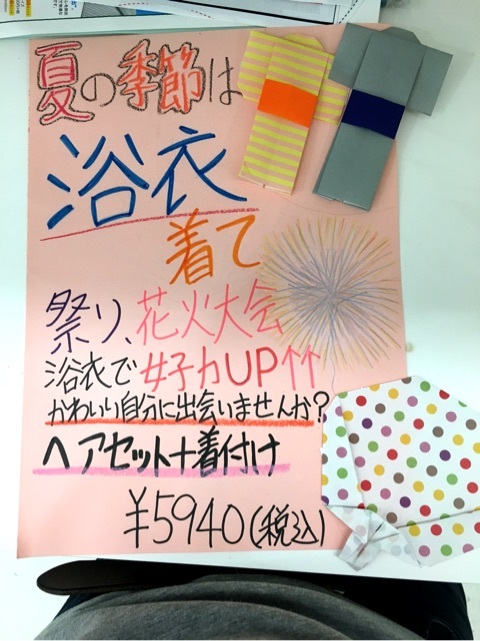 夏の季節は
浴衣
着て
祭り、花火大会
浴衣で女子力UP↑↑
かわいい自分に出会いませんか?
ヘアセット+着付け
¥5940(税込)